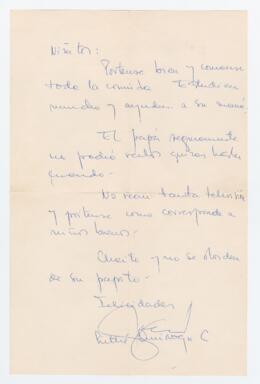 Niñitos:
Portense bien y comanse
toda la comida Estudien
mucho y ayuden a su mamá.
El papá seguramente
no podrá verlos quizas hasta
cuando.
No vean tanta television
y portense como corresponde a
niños buenos.
Chaito y no se olviden
de su papito.
Felicidades